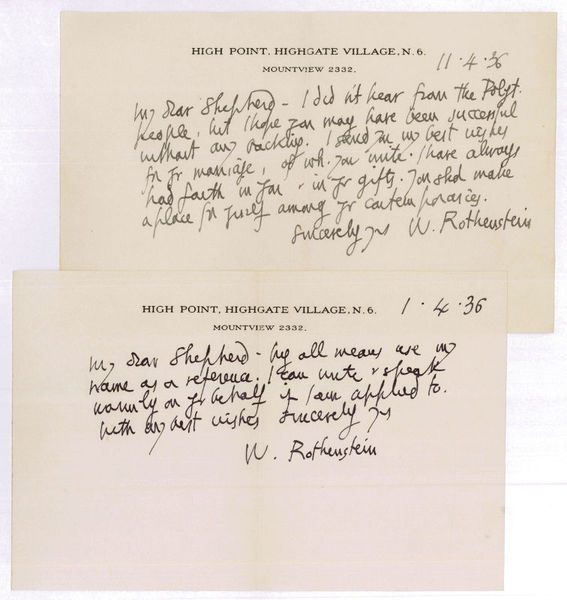 HIGH POINT, HIGHGATE VILLAGE, N.6.
MOUNTVIEW 2332.
11 · 4 · 36
My dear Shepherd – I did n't hear from the Polyt.
people, but I hope you may have been successful
without any backing. I send you my best wishes
for yr marriage, of wh. you write. I have always
had faith in you & in yr gifts. You shd make
a place for yrself among yr contemporaries.
Sincerely yrs W. Rothenstein
HIGH POINT, HIGHGATE VILLAGE, N.6.
MOUNTVIEW 2332.
1 · 4 · 36
My dear Shepherd – by all means use my
name as a reference. I can write & speak
warmly on yr behalf if I am applied to.
With my best wishes Sincerely yrs
W. Rothenstein